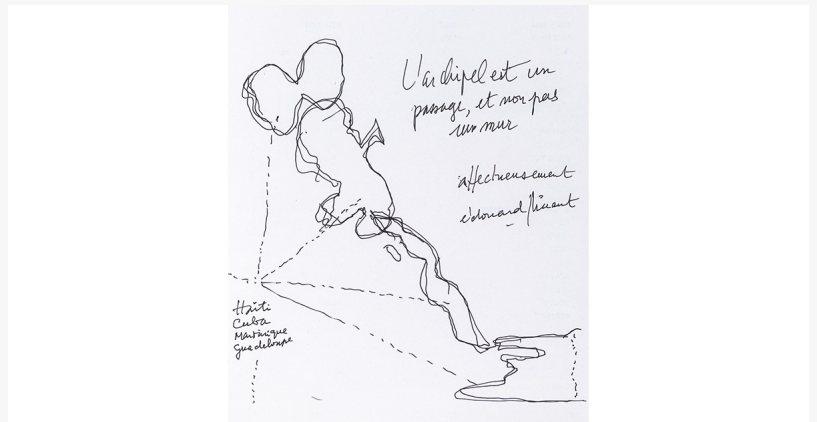 L'archipel est un
passage, et non pas
un mur
affectueusement
édouard Glissant
Haïti
Cuba
Martinique
Guadeloupe